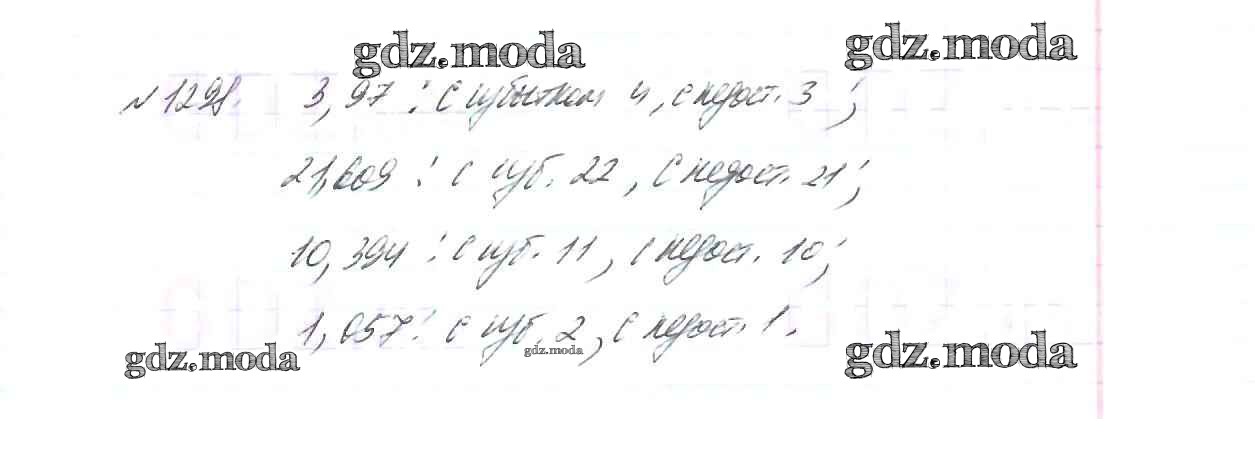 gdz.moda gdz.moda
№1298. 3,97: с избытком 4, с недост. 3;
21,609: с изб. 22, с недост. 21;
10,394: с изб. 11, с недост. 10;
1,057: с изб. 2, с недост. 1.
gdz.moda gdz.moda gdz.moda